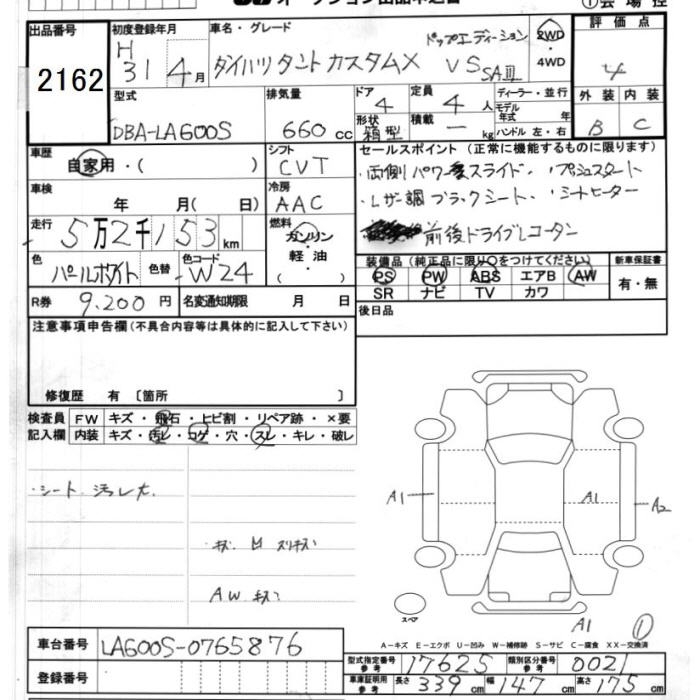 出品番号 初度登録年月 車名・グレード 評価点
2162 H 31 4月 ダイハツ タント カスタムX トップエディション VS SAⅢ 2WD・4WD 4
型式 排気量 ドア 4 定員 4 人 ディーラー・並行 外装 内装
DBA-LA600S 660cc 形状 箱型 積載 ー kg モデル年式 年 ハンドル 左・右 B C
車歴 自家用・( ) シフト CVT セールスポイント(正常に機能するものに限ります)
車検 年 月( 日) 冷房 AAC ・両側パワースライド ・プッシュスタート
・レザー調ブラックシート ・シートヒーター
走行 5万2千153km 燃料 ガソリン・軽油・( ) 前後ドライブレコーダー
色 パールホワイト 色替 色コード W24 装備品(純正品に限り○をつけてください) 新車保証書
PS PW ABS エアB AW 有・無
SR ナビ TV カワ
R券 9.200円 名変通知期限 月 日 後日品
注意事項申告欄(不具合内容等は具体的に記入して下さい)
修復歴 有〔箇所 〕
検査員 FW キズ・飛石・ヒビ割・リペア跡・×要
記入欄 内装 キズ・汚レ・コゲ・穴・スレ・キレ・破レ
・シート汚レ大
A1 A1 A2
キズ 凹 スリキズ
AW キズ
スペア
A1 ①
A-キズ E-エクボ U-凹み W-補修跡 S-サビ C-腐食 XX-交換済
車台番号 LA600S-0765876
登録番号
型式指定番号 参考 17625 類別区分番号 参考 0021
車庫証明用 参考 長さ 339cm 幅 147cm 高さ 175cm